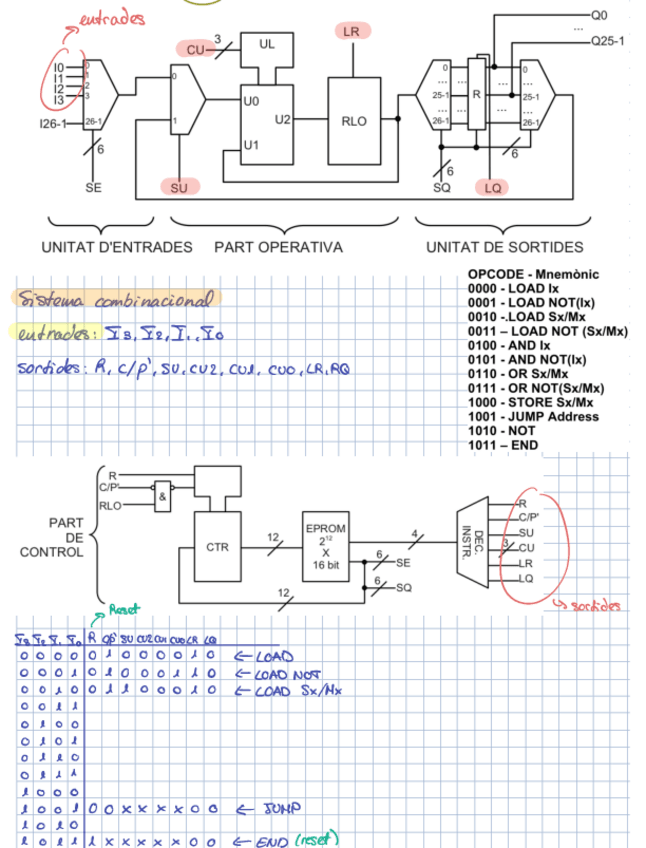 entrades
CU
3
UL
LR
Q0
...
Q25-1
I0
I1
I2
I3
I26-1
0
1
2
3
26-1
6
SE
0
1
SU
U0
U1
U2
RLO
0
...
25-1
...
26-1
R
0
...
25-1
...
26-1
6
SQ
6
LQ
UNITAT D'ENTRADES
PART OPERATIVA
UNITAT DE SORTIDES
OPCODE - Mnemònic
0000 - LOAD Ix
0001 - LOAD NOT(Ix)
0010 -.LOAD Sx/Mx
0011 – LOAD NOT (Sx/Mx)
0100 - AND Ix
0101 - AND NOT(Ix)
0110 - OR Sx/Mx
0111 - OR NOT(Sx/Mx)
1000 - STORE Sx/Mx
1001 - JUMP Address
1010 - NOT
1011 – END
Sistema combinacional
entrades: I3, I2, I1, I0
sortides: R, C/P', SU, CU2, CU1, CU0, LR, RQ
PART
DE
CONTROL
R
C/P'
RLO
&
CTR
12
12
EPROM
2¹²
X
16 bit
4
6 SE
6 SQ
DEC.
INSTR.
R
C/P'
SU
3 CU
LR
LQ
sortides
Reset
I3 I2 I1 I0 R C/P' SU CU2 CU1 CU0 LR LQ
0 0 0 0 0 1 0 0 0 0 1 0 ← LOAD
0 0 0 1 0 1 0 0 0 1 1 0 ← LOAD NOT
0 0 1 0 0 1 1 0 0 0 1 0 ← LOAD Sx/Mx
0 0 1 1
0 1 0 0
0 1 0 1
0 1 1 0
0 1 1 1
1 0 0 0
1 0 0 1 0 0 x x x x 0 0 ← JUMP
1 0 1 0
1 0 1 1 1 x x x x x 0 0 ← END (reset)